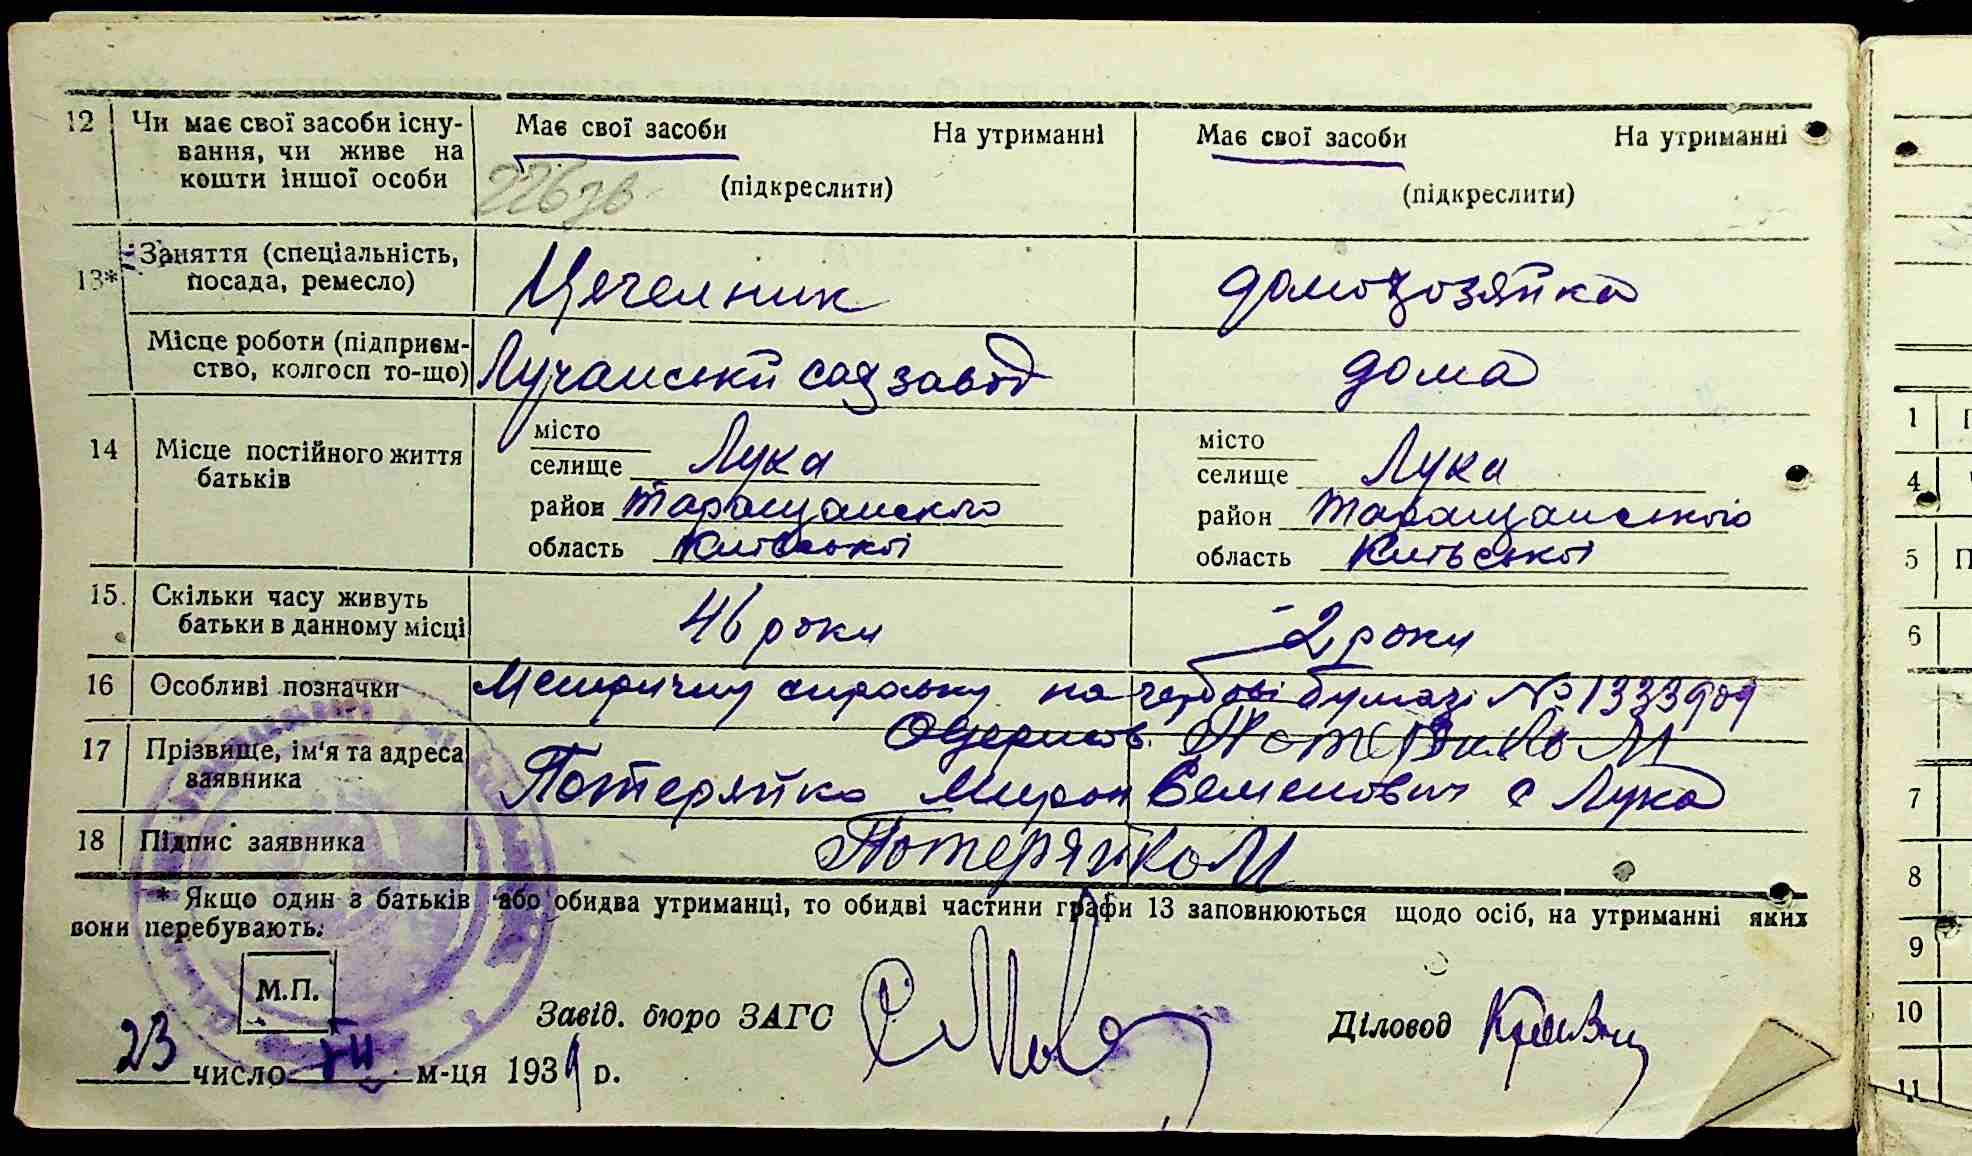 12 Чи має свої засоби існу-
вання, чи живе на
кошти іншої особи
Має свої засоби На утриманні
(підкреслити)
Має свої засоби На утриманні
(підкреслити)
226 зв
13* Заняття (спеціальність,
посада, ремесло)
Цегелник
домохозяйка
Місце роботи (підприєм-
ство, колгосп то-що)
Лучанській сад завод
дома
14 Місце постійного життя
батьків
місто
селище Лука
район Таращанского
область Київської
місто
селище Лука
район Таращанського
область Київської
15. Скільки часу живуть
батьки в данному місці
46 роки
2 роки
16 Особливі позначки
Метричну справку на гербові бумазі № 1333909
Одержав
17 Прізвище, ім'я та адреса
заявника
Потеряйко Мирон Семенович с Лука
18 Підпис заявника
Потеряйко М
* Якщо один з батьків або обидва утриманці, то обидві частини графи 13 заповнюються щодо осіб, на утриманні яких
вони перебувають.
М.П.
Завід. бюро ЗАГС
Діловод
23 число м-ця 1939 р.
1
4
5 П
6
7
8
9
10
11